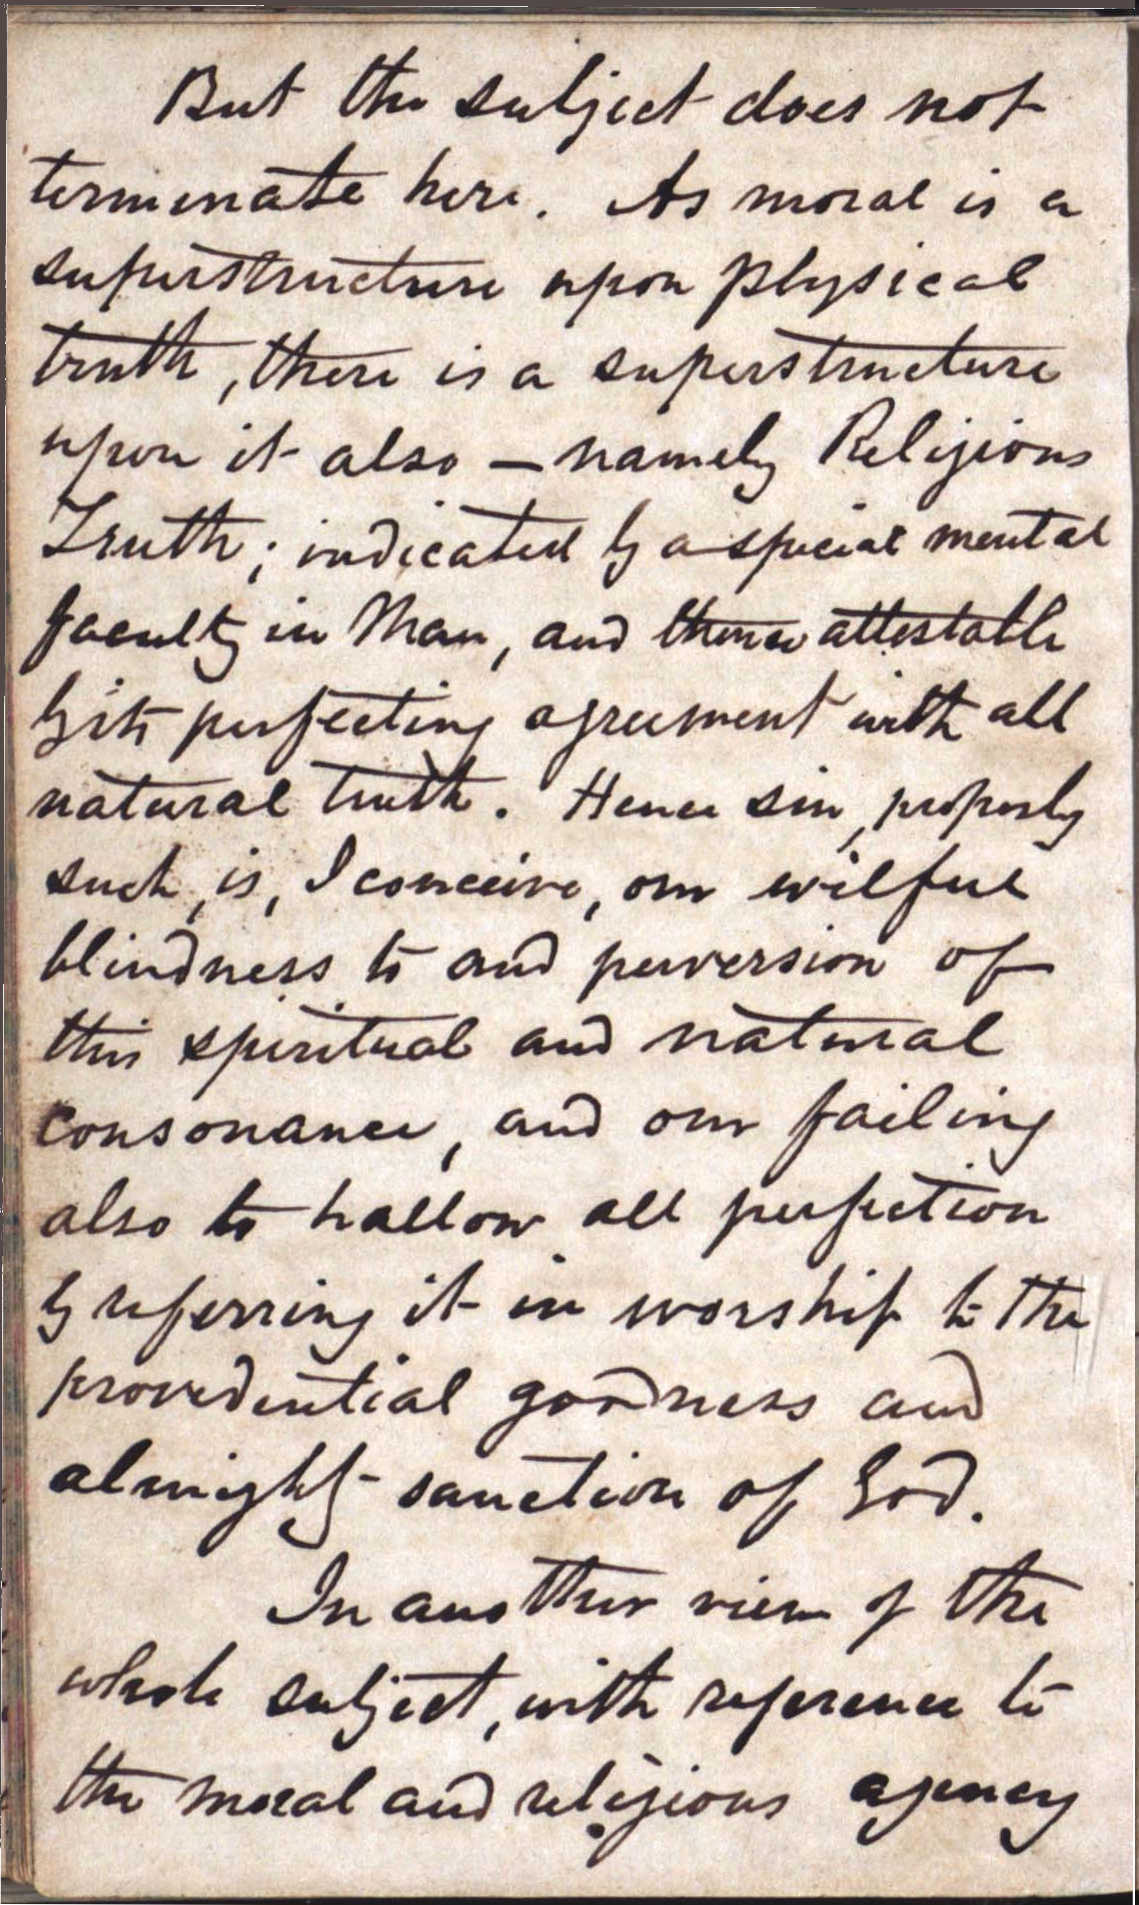 But the subject does not
terminate here. As moral is a
superstructure upon physical
truth, there is a superstructure
upon it also — namely Religious
Truth; indicated by a special mental
faculty in Man, and thence attestable
by its perfecting agreement with all
natural truth. Hence sin, properly
such, is, I conceive, our wilful
blindness to and perversion of
this spiritual and natural
consonance, and our failing
also to hallow all perfection
by referring it in worship to the
providential goodness and
almighty sanction of God.
In another view of the
whole subject, with reference to
the moral and religious agency